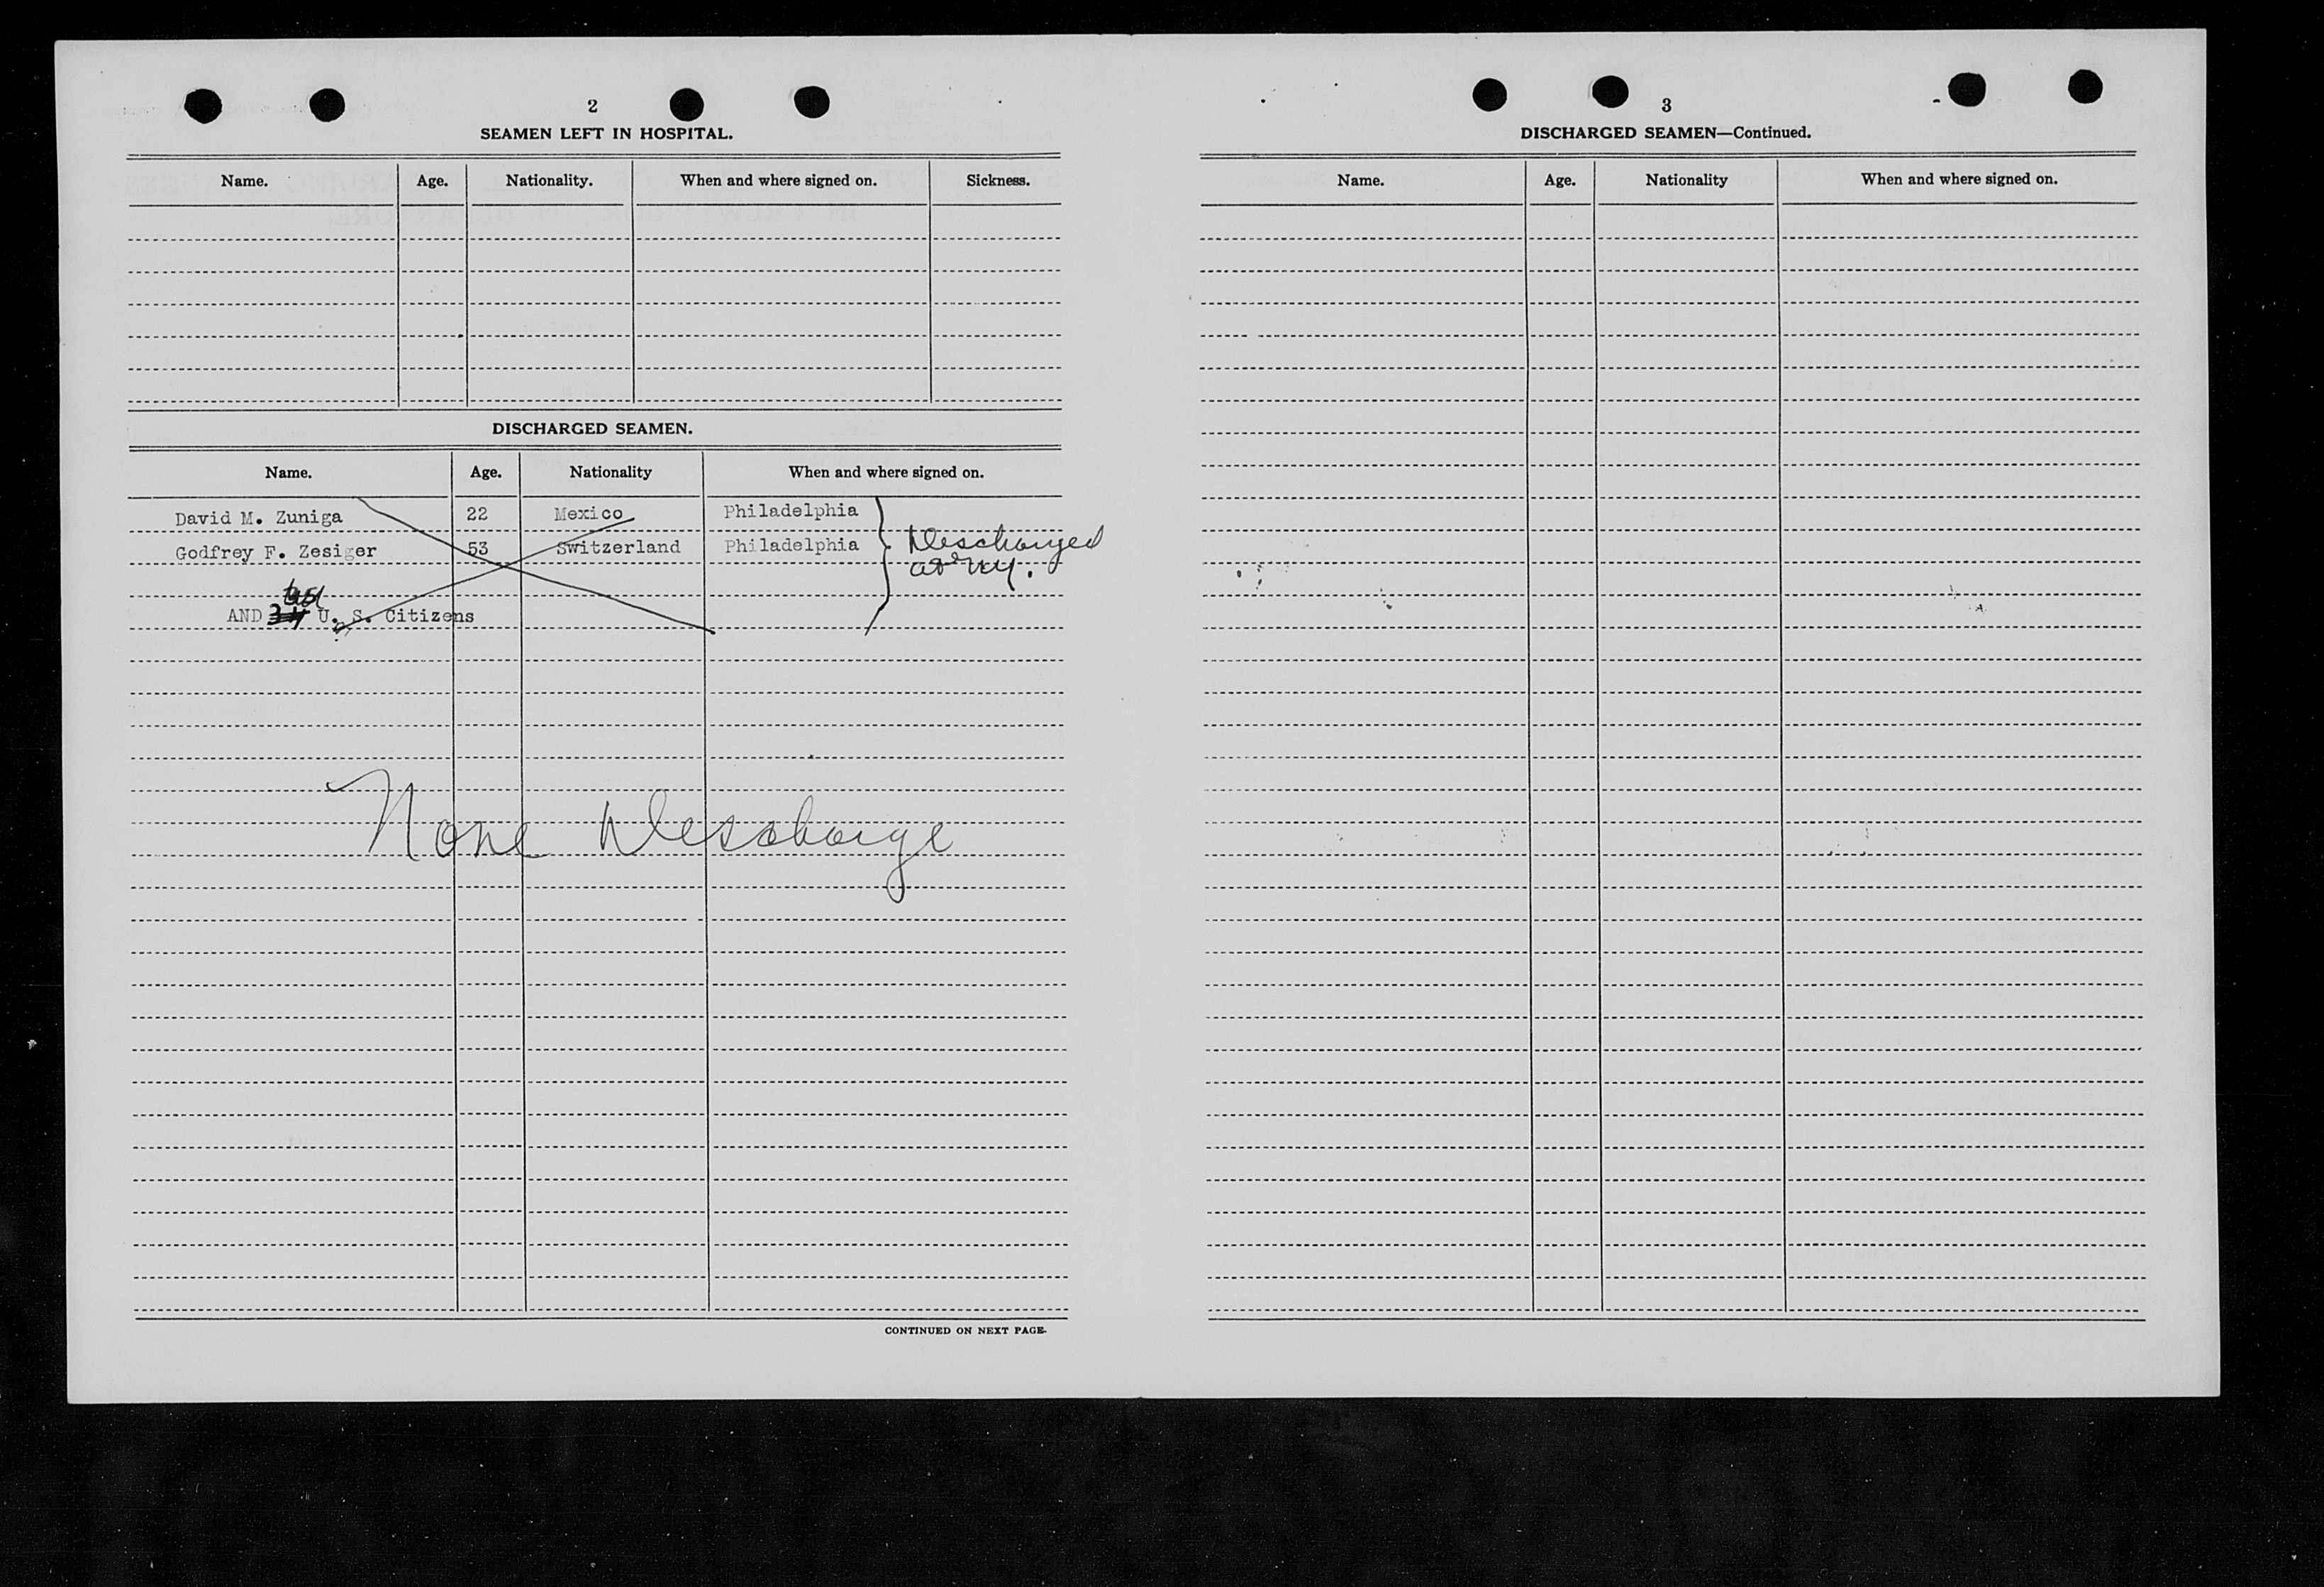 2
SEAMEN LEFT IN HOSPITAL.
Name. Age. Nationality. When and where signed on. Sickness.
DISCHARGED SEAMEN.
Name. Age. Nationality When and where signed on.
David M. Zuniga 22 Mexico Philadelphia
Godfrey F. Zesiger 53 Switzerland Philadelphia
Descharged
army.
AND 34 U. S. Citizens
None Descharge
CONTINUED ON NEXT PAGE.
3
DISCHARGED SEAMEN—Continued.
Name. Age. Nationality When and where signed on.